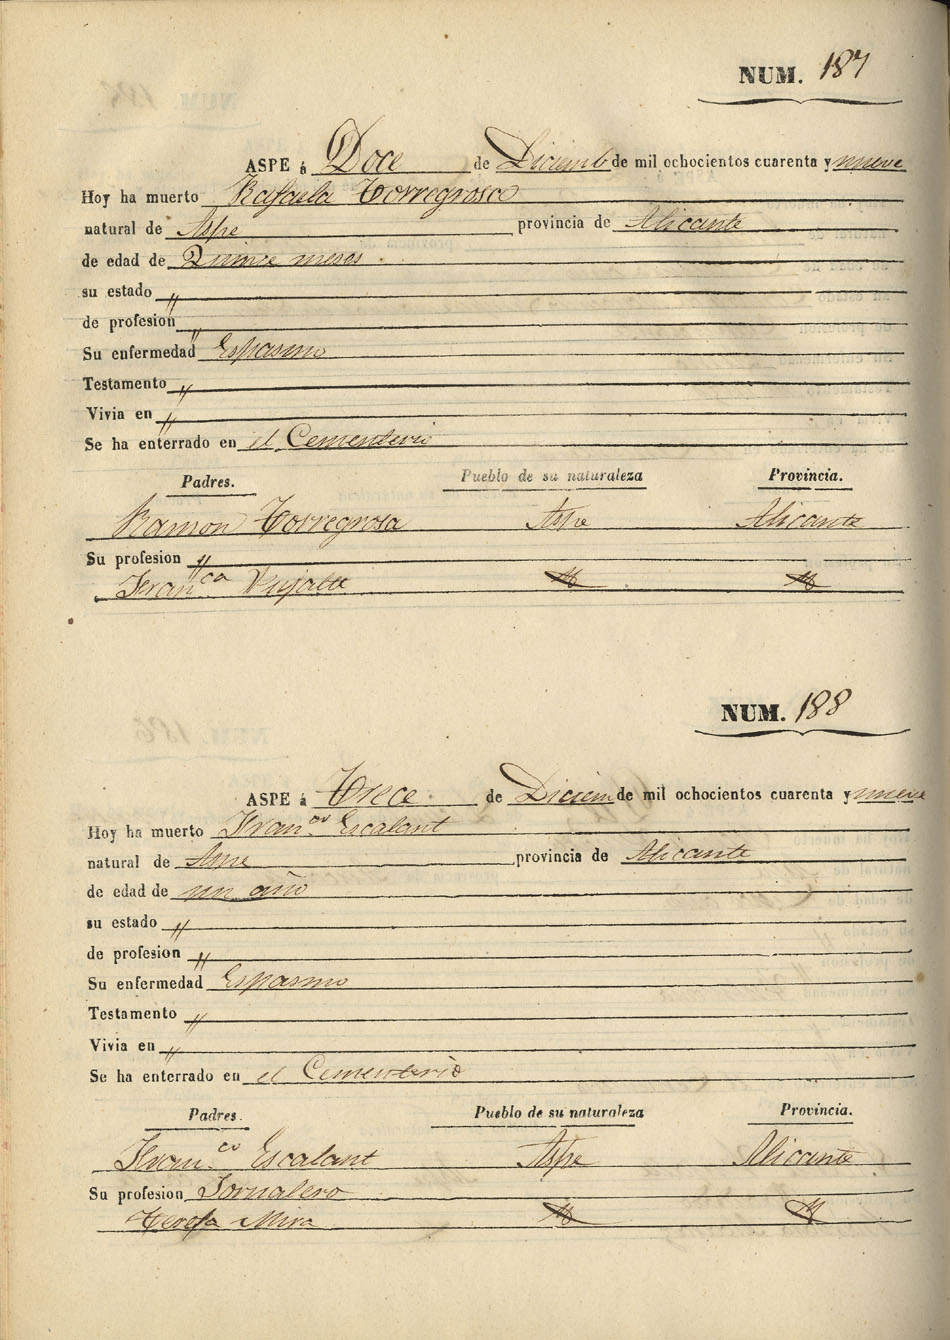 NUM. 187
ASPE á Doce de Diciemb de mil ochocientos cuarenta y nueve
Hoy ha muerto Rafaela Torregrosa
natural de Aspe provincia de Alicante
de edad de Quince meses
su estado "
de profesion "
Su enfermedad Espasmo
Testamento "
Vivia en "
Se ha enterrado en el Cementerio
Padres. Pueblo de su naturaleza Provincia.
Ramon Torregrosa Aspe Alicante
Su profesion "
Fran.ca
NUM. 188
ASPE á Trece de Diciem de mil ochocientos cuarenta y nueve
Hoy ha muerto Fran.co Escalant
natural de Aspe provincia de Alicante
de edad de un año
su estado "
de profesion "
Su enfermedad Espasmo
Testamento "
Vivia en "
Se ha enterrado en el Cementerio
Padres. Pueblo de su naturaleza Provincia.
Fran.co Escalant Aspe Alicante
Su profesion Jornalero
Teresa Mira